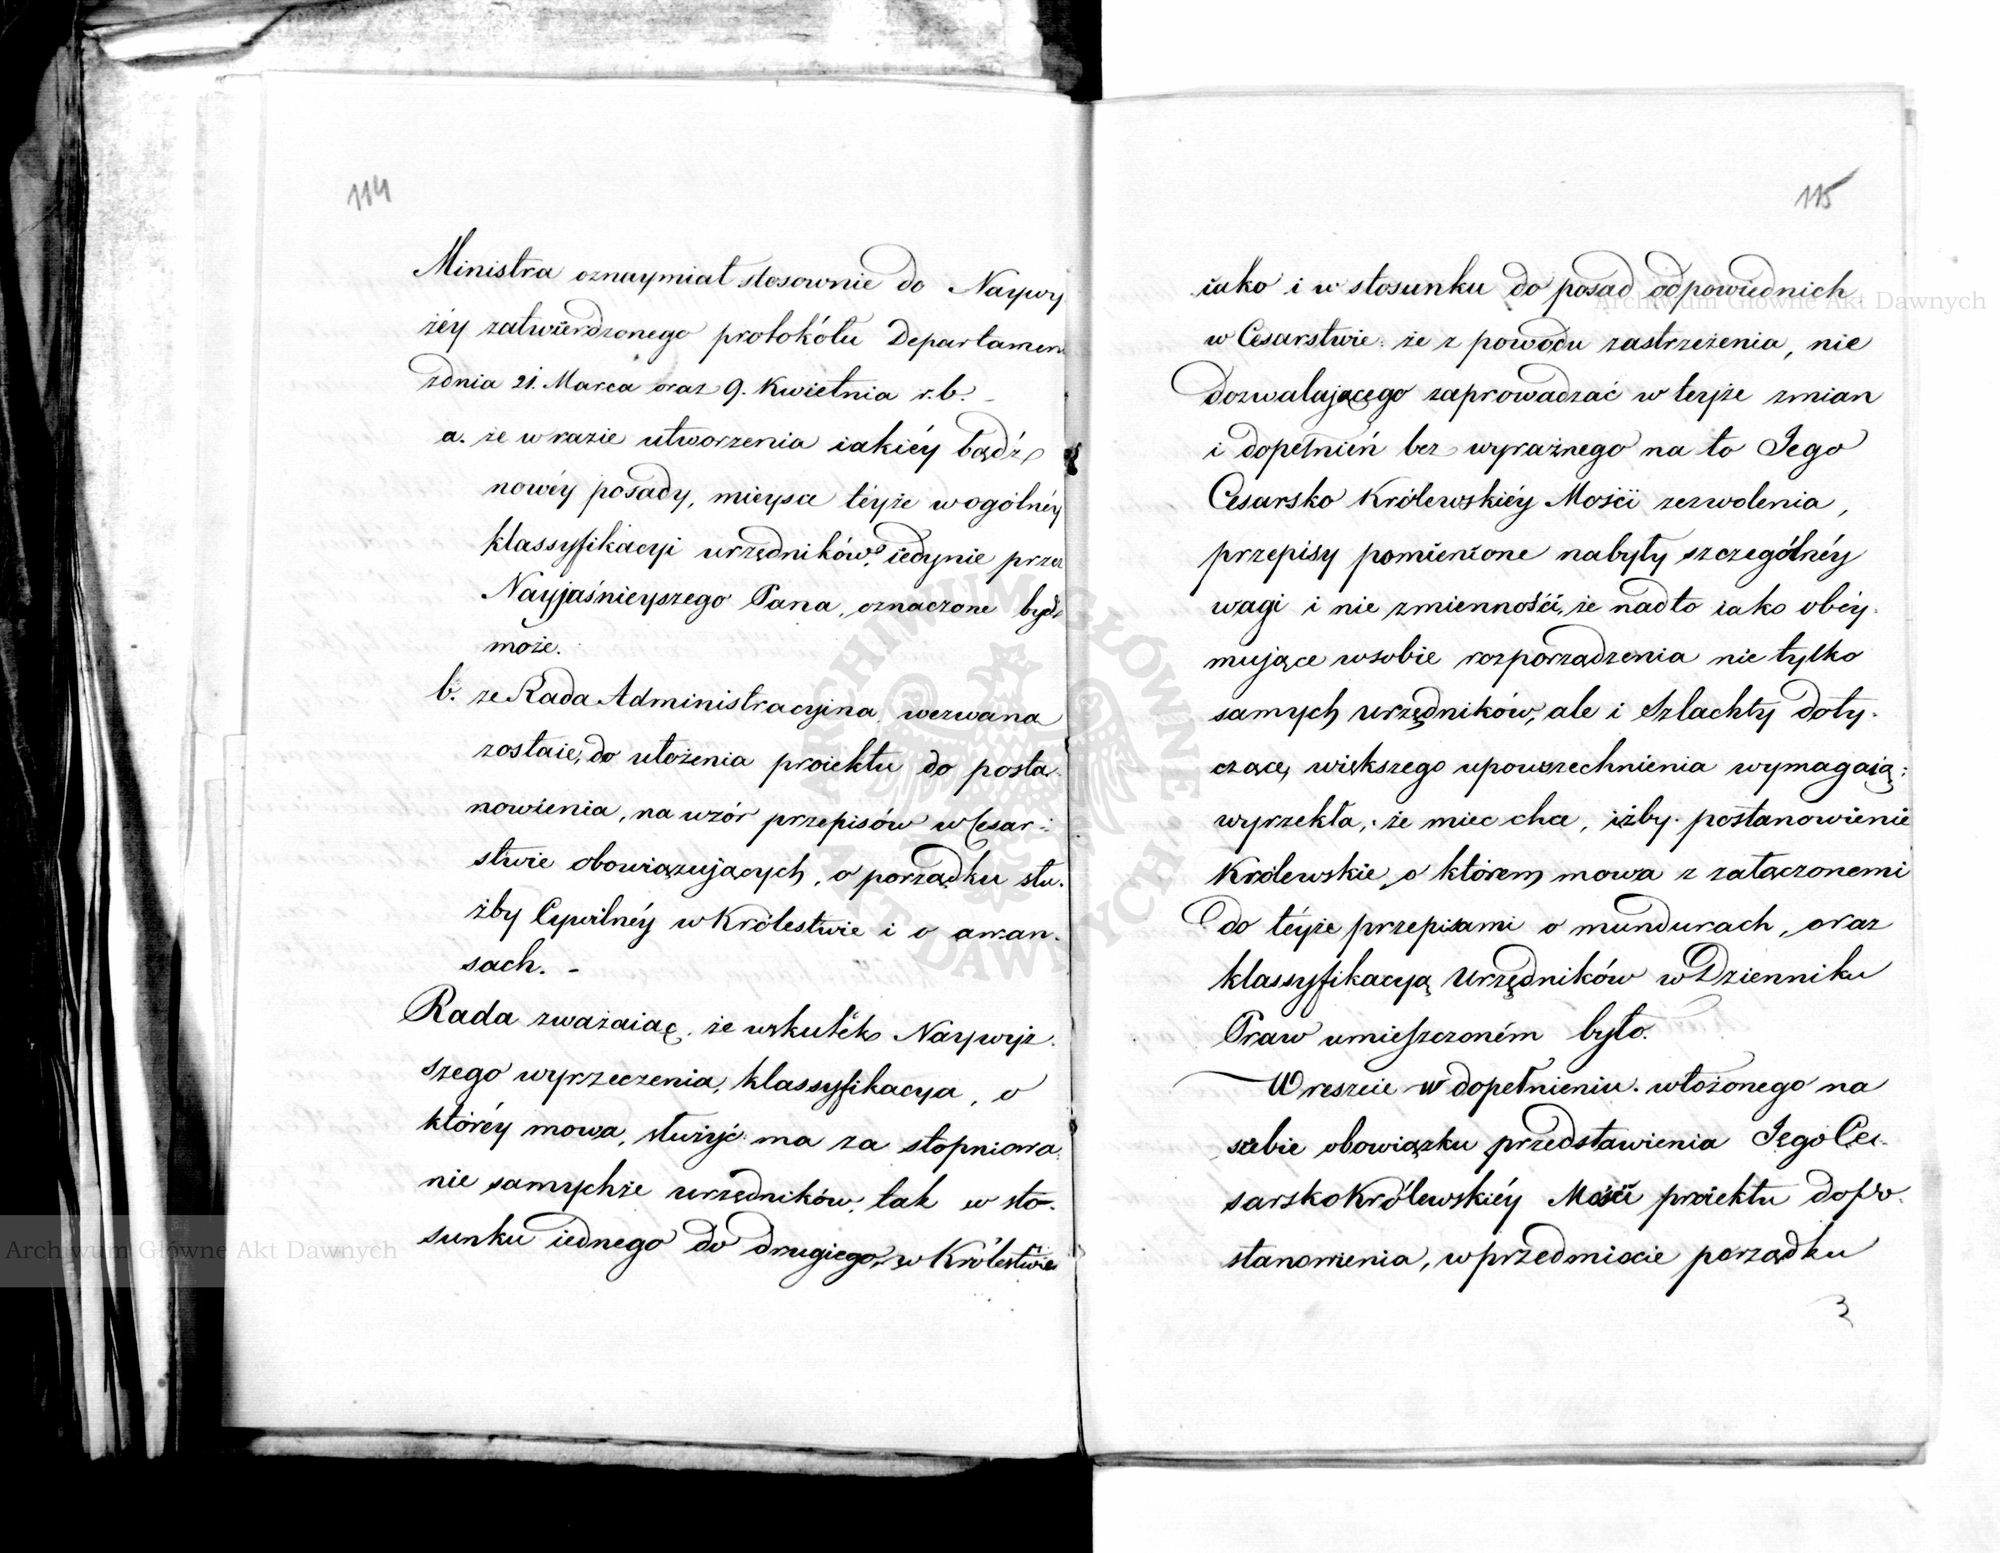 114
Ministra oznaymiał stosownie do Naywy
żéy zatwierdzonego protokółu Departamen
zdnia 21. Marca oraz 9. Kwietnia r.b. –
a. że w razie utworzenia iakiéy bądź
nowéy posady, mieysce téyże w ogólnéy
klassyfikacyi urzędników, iedynie przez
Nayjaśnieyszego Pana, oznaczone być
może.
b. że Rada Administracyina wezwana
zostaie, do ułożenia proiektu do posta
nowienia, na wzór przepisów w Cesar:
stwie obowiązujących, o porządku słu.
żby Cywilnéy w Królestwie i o awan.
sach. –
Rada zważaiąc, że wskutek Naywyż.
szego wyrzeczenia, klassyfikacya, o
któréy mowa, służyć ma za stopniowa
nie samychże urzędników, tak w sto.
sunku iednego do drugiego, w Królestwie
115
iako i w stosunku do posad odpowiednich
w Cesarstwie: że z powodu zastrzeżenia, nie
dozwalającego zaprowadzać w teyże zmian
i dopełnień bez wyraźnego na to Jego
Cesarsko Królewskiéy Mości zezwolenia,
przepisy pomienione nabyły szczególnéy
wagi i nie zmienności, że nadto iako obéy.
mujące w sobie rozporządzenia nie tylko
samych urzędników, ale i Szlachty doty.
czące, większego upowszechnienia wymagaią:
wyrzekła, że mieć chce, iżby postanowienie
Królewskie, o którem mowa z załączonemi
do téyże przepisami o mundurach, oraz
klassyfikacyą Urzędników w Dzienniku
Praw umieszczoném było.
Wreszcie w dopełnieniu włożonego na
siebie obowiązku przedstawienia Jego Ce.
sarsko Królewskiéy Mości proiektu do po.
stanowienia, w przedmiocie porządku
3
Archiwum Główne Akt Dawnych
Archiwum Główne Akt Dawnych
ARCHIWUM GŁÓWNE AKT DAWNYCH